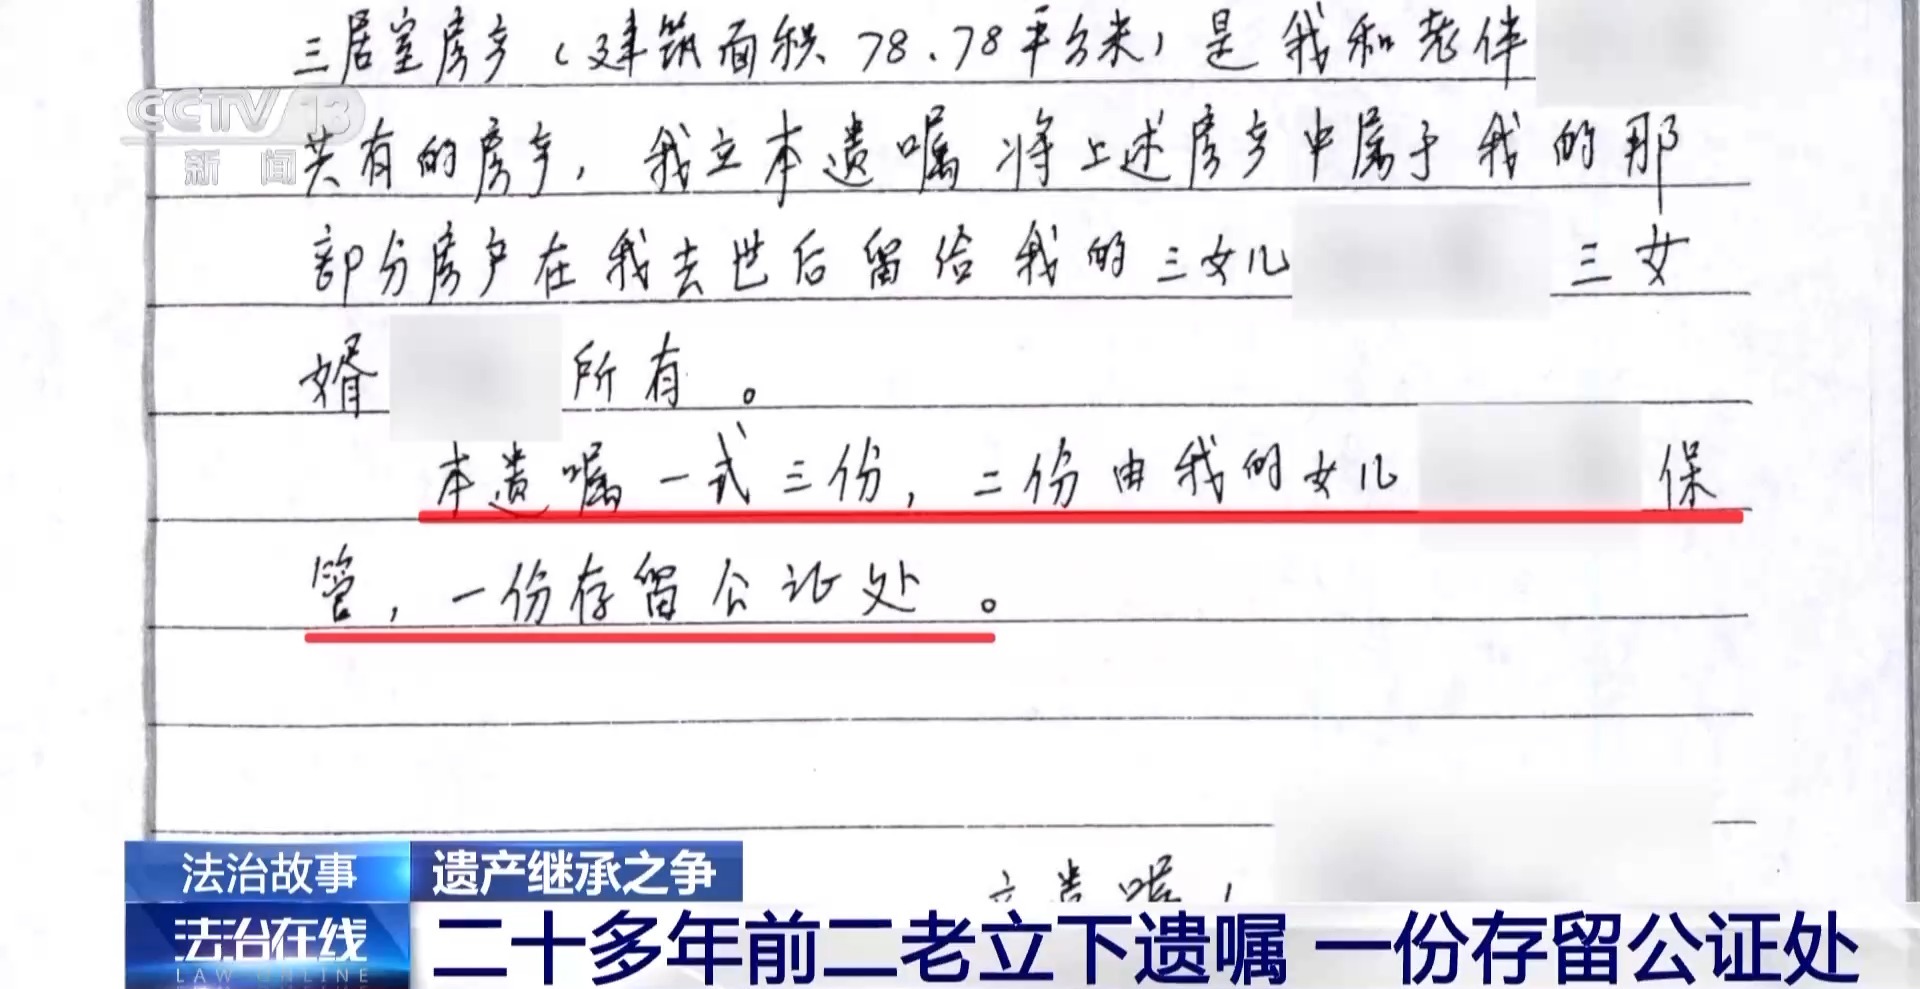 三居室房产（建筑面积78.78平方米）是我和老伴
CCTV 13
新闻
共有的房产，我立本遗嘱将上述房产中属于我的那
部分房产在我去世后留给我的三女儿 三女
婿 所有。
本遗嘱一式三份，二份由我的女儿 保
管，一份存留公证处。
立遗嘱人
法治故事 遗产继承之争
法治在线
LAW ONLINE
二十多年前二老立下遗嘱 一份存留公证处